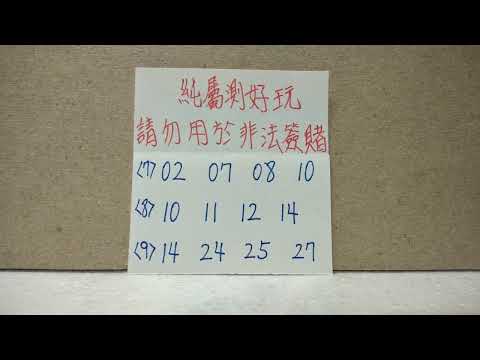 純屬測好玩
請勿用於非法簽賭
<7> 02 07 08 10
<8> 10 11 12 14
<9> 14 24 25 27